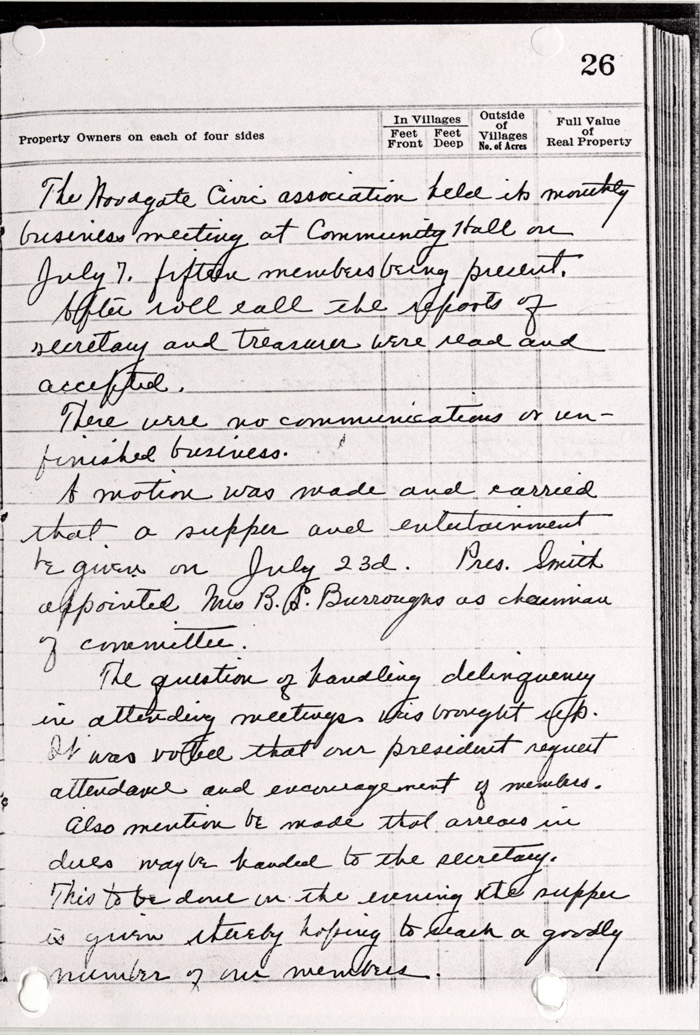 26
Property Owners on each of four sides
In Villages
Feet Front
Feet Deep
Outside of Villages No. of Acres
Full Value of Real Property
The Woodgate Civic association held its monthly
business meeting at Community Hall on
July 7. fifteen members being present.
After roll call the reports of
secretary and treasurer were read and
accepted.
There were no communications or un-
finished business.
A motion was made and carried
that a supper and entertainment
be given on July 23d. Pres. Smith
appointed Mrs B. S. Burroughs as chairman
of committee.
The question of handling delinquency
in attending meetings was brought up.
It was voted that our president request
attendance and encouragement of members.
Also mention be made that arrears in
dues may be handed to the secretary.
This to be done on the evening the supper
is given thereby hoping to reach a goodly
number of our members.